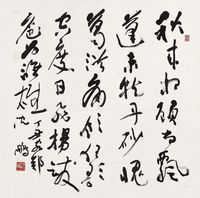 秋来相顾尚飘
蓬未就丹砂愧
葛洪痛饮狂歌
空度日飞扬跋
扈为谁雄
丁丑
沈鹏